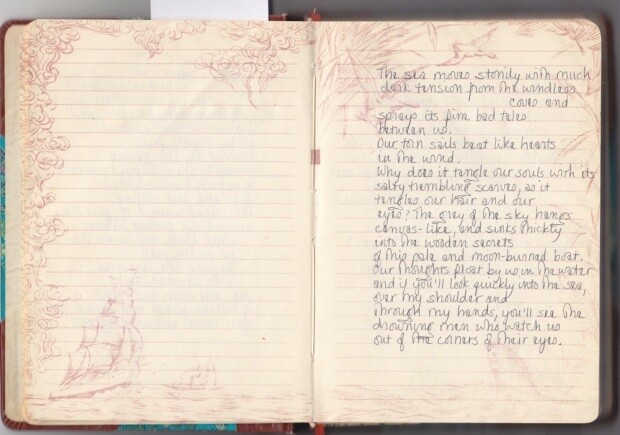 The sea moves stonily with much
dark tension from the windless
coves and
sprays its fine bad tales
between us.
Our torn sails beat like hearts
in the wind.
Why does it tangle our souls with its
salty trembling scarves, as it
tangles our hair and our
eyes? The gray of the sky hangs
canvas-like, and sinks thickly
into the wooden secrets
of this pale and moon-burned boat.
Our thoughts float by us in the water
and if you'll look quickly into the sea,
over my shoulder and
through my hands, you'll see the
drowning men who watch us
out of the corners of their eyes.